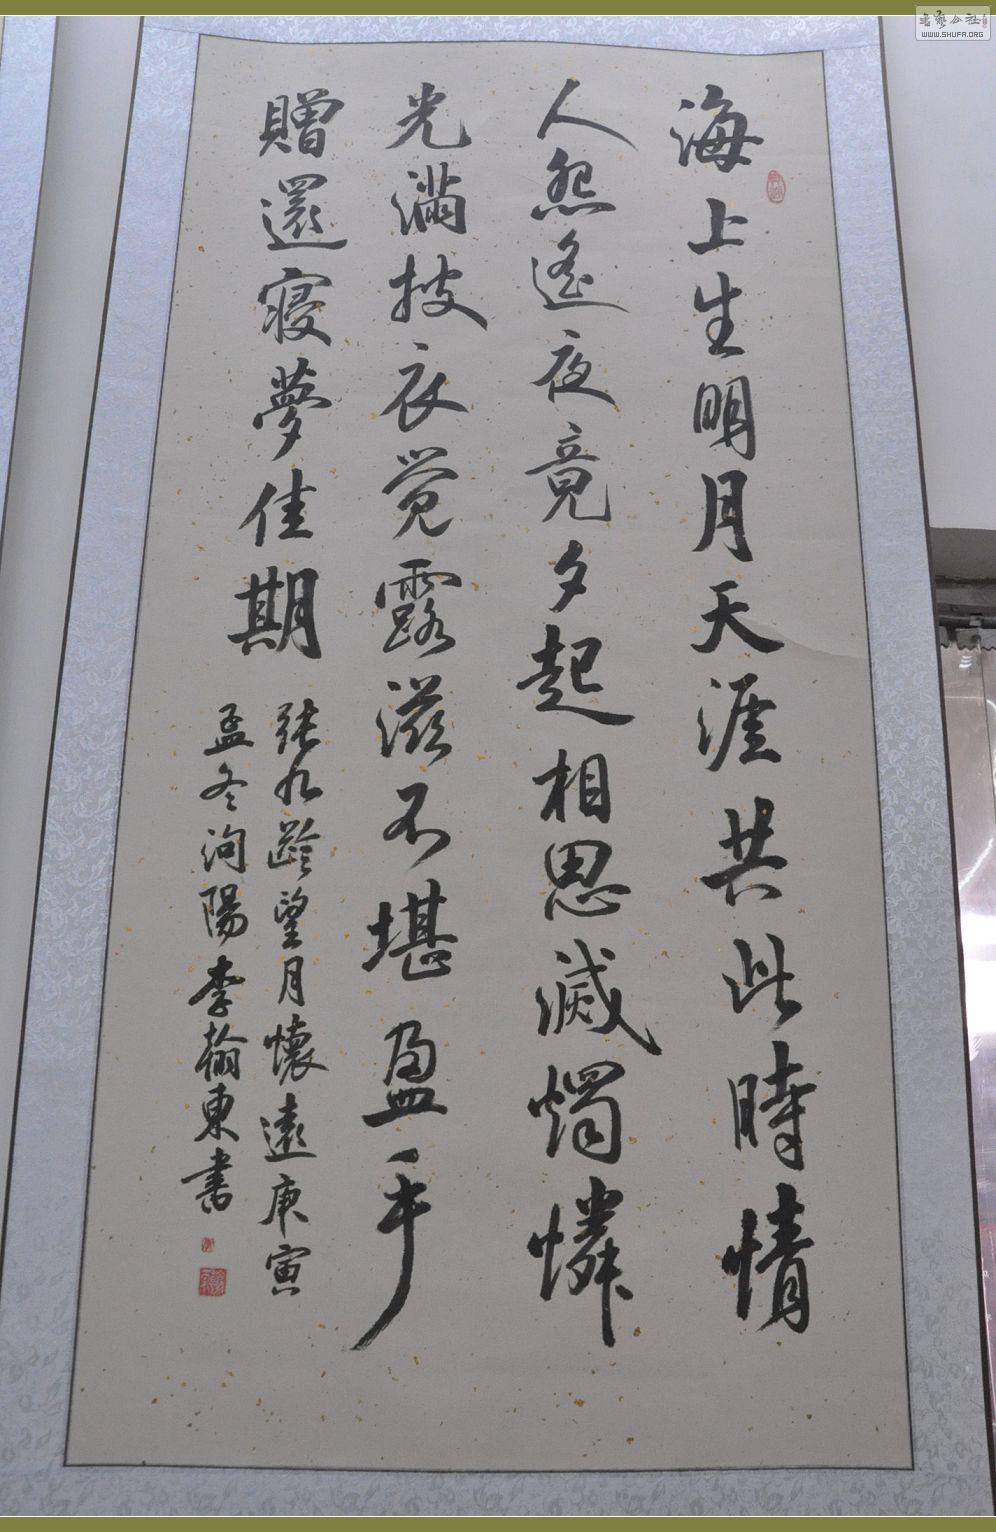 海上生明月天涯共此時情
人怨遙夜竟夕起相思滅燭憐
光滿披衣覺露滋不堪盈手
贈還寢夢佳期
張九齡望月懷遠庚寅
孟冬洵陽李翰東書
WWW.SHUFA.ORG